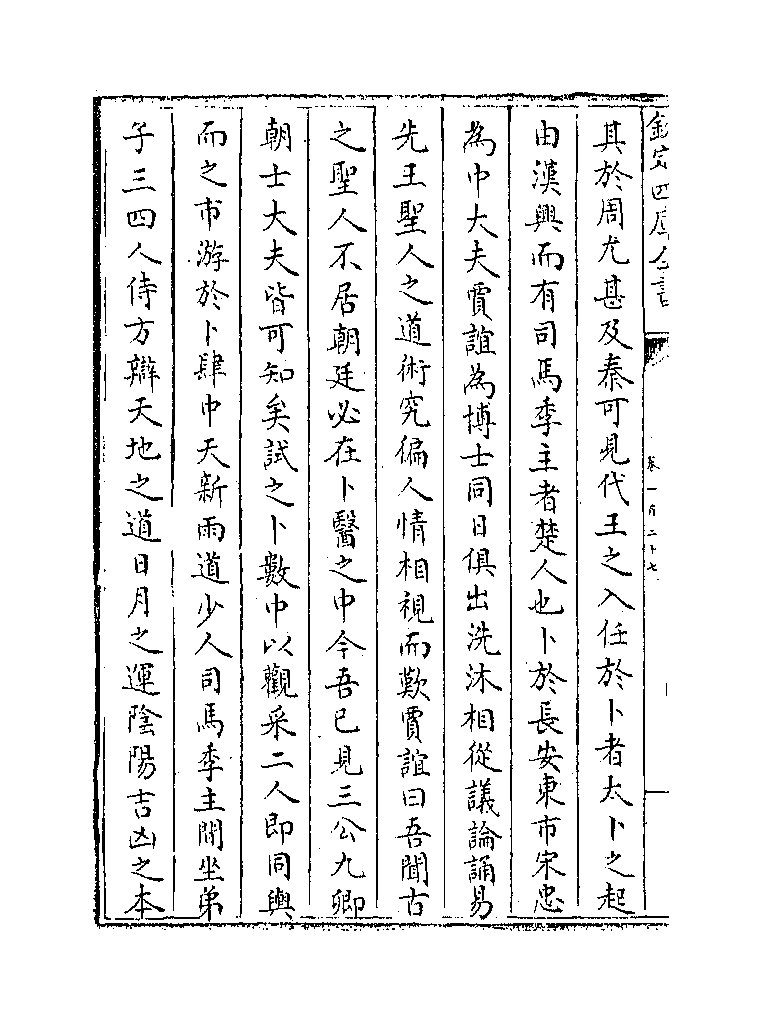 欽定四庫全書
卷一百二十七
其於周尤甚及秦可見代王之入任於卜者太卜之起
由漢興而有司馬季主者楚人也卜於長安東市宋忠
為中大夫賈誼為博士同日俱出洗沐相從議論誦易
先王聖人之道術究徧人情相視而歎賈誼曰吾聞古
之聖人不居朝廷必在卜醫之中今吾已見三公九卿
朝士大夫皆可知矣試之卜數中以觀采二人即同輿
而之市游於卜肆中天新雨道少人司馬季主閒坐弟
子三四人侍方辯天地之道日月之運陰陽吉凶之本